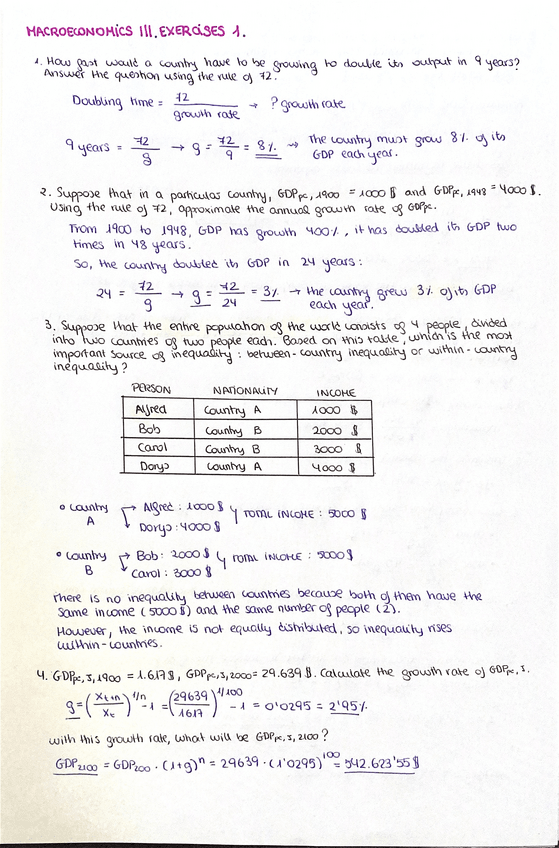 MACROECONOMICS III. EXERCISES 1.
1. How fast would a country have to be growing to double its output in 9 years?
Answer the question using the rule of 72.
Doubling time = 72 / growth rate → ? growth rate
9 years = 72 / g → g = 72 / 9 = 8% → The country must grow 8% of its
GDP each year.
2. Suppose that in a particular country, GDPpc, 1900 = 1000 $ and GDPpc, 1948 = 4000 $.
Using the rule of 72, aproximate the annual growth rate of GDPpc.
From 1900 to 1948, GDP has growth 400%, it has doubled its GDP two
times in 48 years.
So, the country doubled its GDP in 24 years:
24 = 72 / g → g = 72 / 24 = 3% → the country grew 3% of its GDP
each year.
3. Suppose that the entire population of the world consists of 4 people, divided
into two countries of two people each. Based on this table, which is the most
important source of inequality: between-country inequality or within-country
inequality?
PERSON NATIONALITY INCOME
Alfred Country A 1000 $
Bob Country B 2000 $
Carol Country B 3000 $
Doryo Country A 4000 $
• Country A → Alfred: 1000 $
→ Doryo: 4000 $ } TOTAL INCOME: 5000 $
• Country B → Bob: 2000 $
→ Carol: 3000 $ } TOTAL INCOME: 5000 $
There is no inequality between countries because both of them have the
same income (5000 $) and the same number of people (2).
However, the income is not equally distributed, so inequality rises
within-countries.
4. GDPpc, J, 1900 = 1.617 $, GDPpc, J, 2000 = 29.639 $. Calculate the growth rate of GDPpc, J.
g = (Xt+n / Xt)^1/n - 1 = (29639 / 1617)^1/100 - 1 = 0'0295 = 2'95%
With this growth rate, what will be GDPpc, J, 2100?
GDP2100 = GDP200 · (1+g)^n = 29639 · (1'0295)^100 = 542.623'55 $